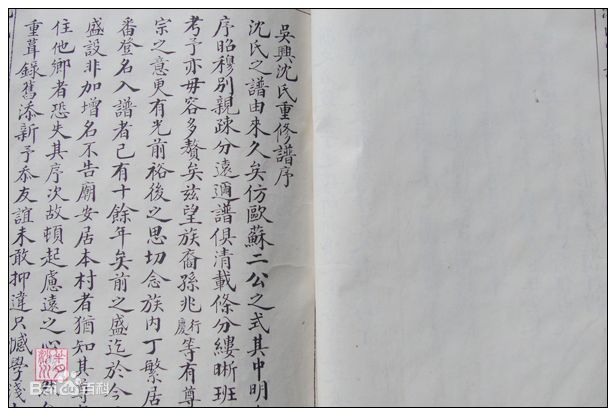 吳興沈氏重修譜序
沈氏之譜由來久矣仿歐蘇二公之式其中明
序昭穆別親疎分遠邇譜俱清載條分縷晰班
考予亦毋容多贅矣茲望族裔孫兆慶行等有尊
宗之意更有光前裕後之思切念族內丁繁居
番登名入譜者已有十餘年矣前之盛迄於今
盛設非加增名不告廟安居本村者猶知其
住他鄉者恐失其序次故頓起慮遠之心
重葺錄舊添新予忝友誼未敢抑違只憾學淺
Bai百科